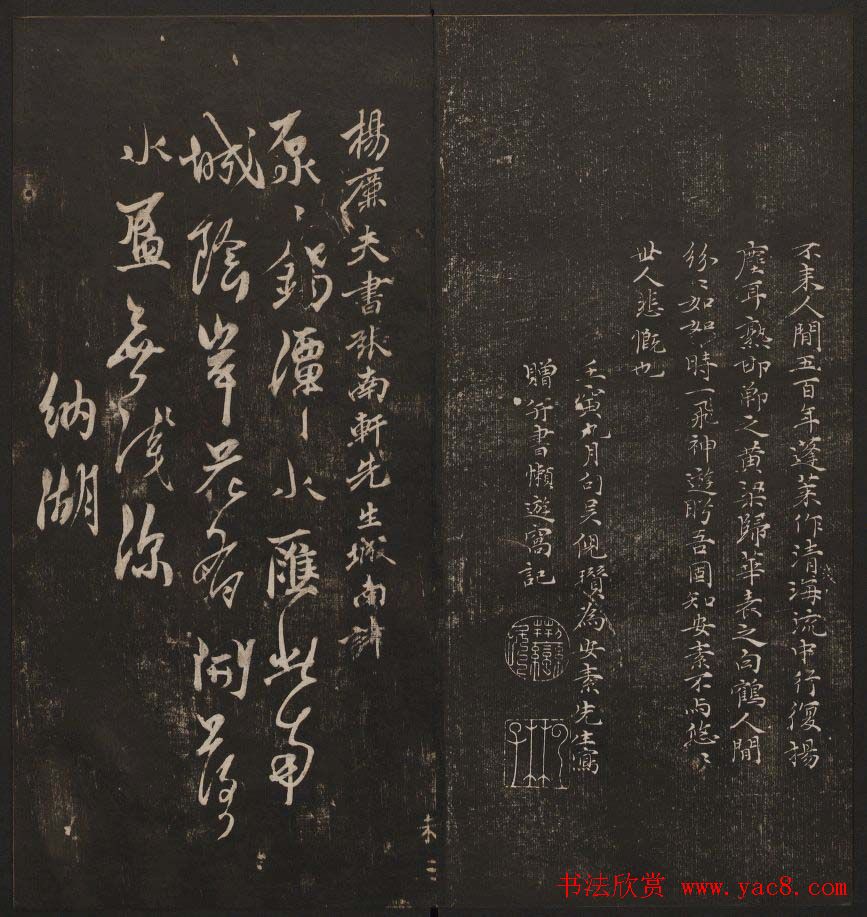 不来人間五百年蓬莱作清海流中行復揚
塵耳熟邯鄲之黄粱歸華表之白鶴人間
紛〻如如時一飛神遊盼吾固知安素不与趍〻
世人悲慨也
壬寅九月句吴倪瓚為安素先生寫
贈并書懶遊窩記
楊廉夫書張南軒先生城南詩
原〻錫潭〻水匯此南
城陰岸花有開落
水盈無淺深
納湖
未二
书法欣赏 www.yac8.com